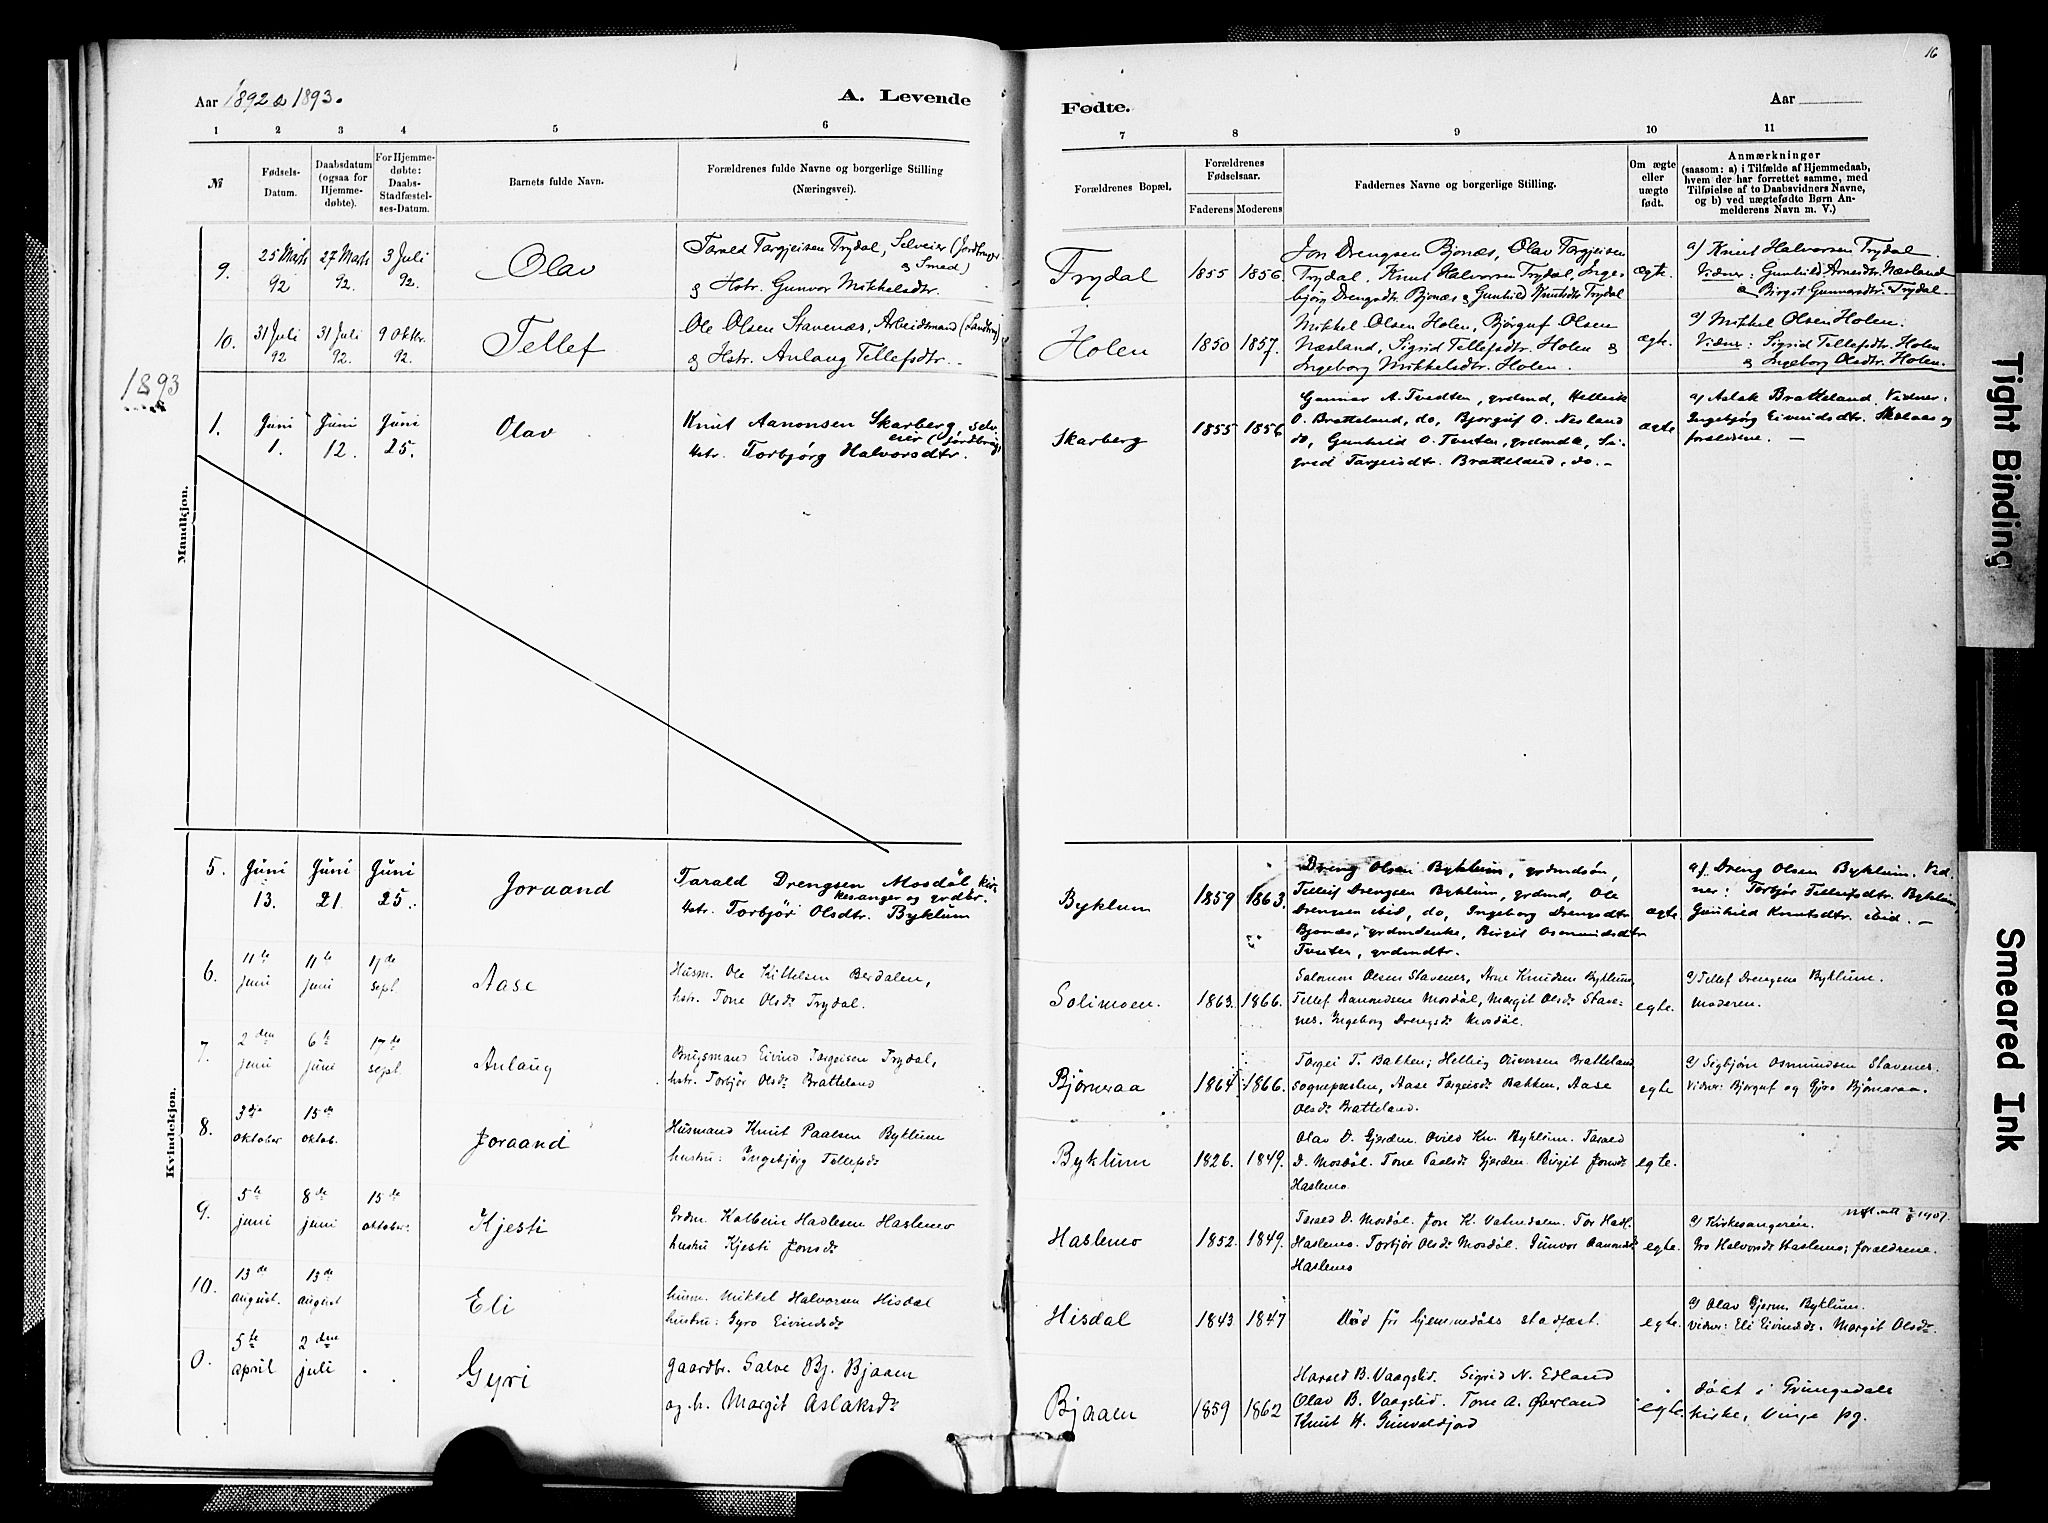 16
Aar 1892 & 1893.
A. Levende
Fødte.
Aar
1 2 3 4 5 6 7 8 9 10 11
№
Fødsels-
Datum.
Daabsdatum
(ogsaa for
Hjemme-
døbte).
For Hjemme-
døbte:
Daabs-
Stadfæstel-
ses-Datum.
Barnets fulde Navn.
Forældrenes fulde Navne og borgerlige Stilling
(Næringsvei).
Forældrenes Bopæl.
Forældrenes
Fødselsaar.
Faderens Moderens
Faddernes Navne og borgerlige Stilling.
Om ægte
eller
uægte
født.
Anmærkninger
(saasom: a) i Tilfælde af Hjemmedaab,
hvem der har forrettet samme, med
Tilføielse af to Daabsvidners Navne,
og b) ved uægtefødte Børn An-
melderens Navn m. V.)
Mandkjøn.
9.
25 Marts
92
27 Marts
92.
3 Juli
92.
Olav
Tarald Targjeisen Trydal, Selveier (Jordbruger
& Smed)
& Hstr. Gunvor Mikkelsdtr.
Trydal
1855 1856
Jon Drengsen Bjonæs, Olav Targjeisen
Trydal, Knut Halvorsen Trydal, Inge-
bjørg Drengsdtr Bjonæs & Gunhild Knutsdtr Trydal
ægte.
a) Knut Halvorsen Trydal.
Vidner: Gunhild Arnesdtr. Næsland
& Birgit Gunnarsdtr. Trydal.
10.
31 Juli
92
31 Juli
92.
9 Oktbr.
92.
Tellef
Ole Olsen Stavenæs, Arbeidsmand
& Hstr. Anlaug Tellefsdtr.
Holen
1850 1857.
Mikkel Olsen Holen, Bjørguf Olsen
Næsland, Sigrid Tellefsdtr. Holen &
Ingeborg Mikkelsdtr. Holen.
ægte.
a) Mikkel Olsen Holen.
Vidner: Sigrid Tellefsdtr. Holen
& Ingeborg Olsdtr. Holen.
1893
1.
Juni
1.
Juni
12.
Juni
25.
Olav
Knut Aanonsen Skarberg, selv-
eier (jordbrug,
Hstr. Torbjørg Halvorsdtr.
Skarberg
1855 1856
Gunnar A. Tvedten, grdmd, Hellvik
O. Bratteland, do, Bjorguf O. Nesland
do, Gunhild O. Tveten, grdmdk, Si-
grid Targeisdtr. Bratteland, do. —
ægte
a) Aslak Bratteland. Vidner:
Ingebjørg Eivindsdtr. Skolaas og
forældrene. —
Kvindekjøn.
5.
Juni
13.
Juni
21.
Juni
25.
Joraand
Tarald Drengsen Mosdøl, kir-
kesanger og grdbr.
Hstr. Torbjør Olsdtr. Byklum
Byklum
1859 1863.
Dreng Olsen Byklum, grdmdsøn,
Tellef Drengsen Byklum, grdmd, Ole
Drengsen ibid, do, Ingeborg Drengsdtr
Bjonæs, grdmdenke, Birgit Osmundsdtr
Tveten, grdmdtr.
ægte.
a) Dreng Olsen Byklum. Vid-
ner: Torbjør Tellefsdtr. Byklum,
Gunhild Knutsdtr. ibid. —
6.
11te
juni
11te
juni
17de
sept
Aase
Husm. Ole Kittelsen Berdalen,
hstr. Tone Olsdr Trydal.
Solimoen.
1863. 1866.
Salomon Olsen Stavenes, Arne Knudsen Byklum,
Tellef Aanondsen Mosdøl, Margit Olsdr Stave-
nes. Ingeborg Drengsdr Mosdøl.
egte.
a) Tellef Drengsen Byklum.
moderen.
7.
2den
juni
6te
juni
17de
sept
Anlaug
Brugsmand Eivind Targeisen Trydal,
hstr. Torbjør Olsdr Bratteland
Bjørneraa
1864 1866.
Targei T. Bakken; Hellvig Ouversen Bratteland
sognepresten, Aase Targeisdr Bakken, Aase
Olsdr Bratteland.
egte
a) Sigbjøn Osmundsen Stavenes.
Vidner: Bjorguf og Gyro Bjørneraa.
8.
3dje
oktober
15de
oktob.
Joraand
Husmand Knut Paalsen Byklum
hustru: Ingebjørg Tellefsdr
Byklum
1826. 1849.
Olav D. Gjerden. Kn. Byklum. Tarald
D. Mosdøl. Tone Paalsdr Gjerden. Birgit Jonsdr
Haslemo
egte.
9.
5te
juni
8de
juni
15de
oktober.
Kjesti
Grdm. Kolbein Hadlesen Haslemo
hustru Kjesti Jonsdr
Haslemo
1852. 1849.
Tarald D. Mosdøl. Jon K. Vatndalen. Tor Hadl.
Haslemo. Torbjør Olsdr Mosdøl. Gunvor Aanondsdr
Haslemo
egte.
a) Kirkesangeren.
Gro Halvorsdr Haslemo; forældrene.
10.
13de
august.
13de
august
Eli
husm. Mikkel Halvorsen Hisdal
hustru: Gyro Eivindsdr
Hisdal
1843 1847
Død før hjemmedåbs stadfæst.
egte.
a) Olav Gjerm. Byklum.
vidner: Eli Eivindsdr. Margit Olsdr.
0.
5te
april
2den
juli
Gyri
gaardbr. Salve Bj. Bjaaen
og h. Margit Aslaksdr
Bjaaen
1859 1862
Harald B. Vaagslid. Sigrid N. Edland
Olav B. Vaagslid. Tone A. Øverland
Knut H. Grunvaldjord
egte.
døbt i Grungedals
kirke, Vinje pg.
Tight Binding
Smeared Ink